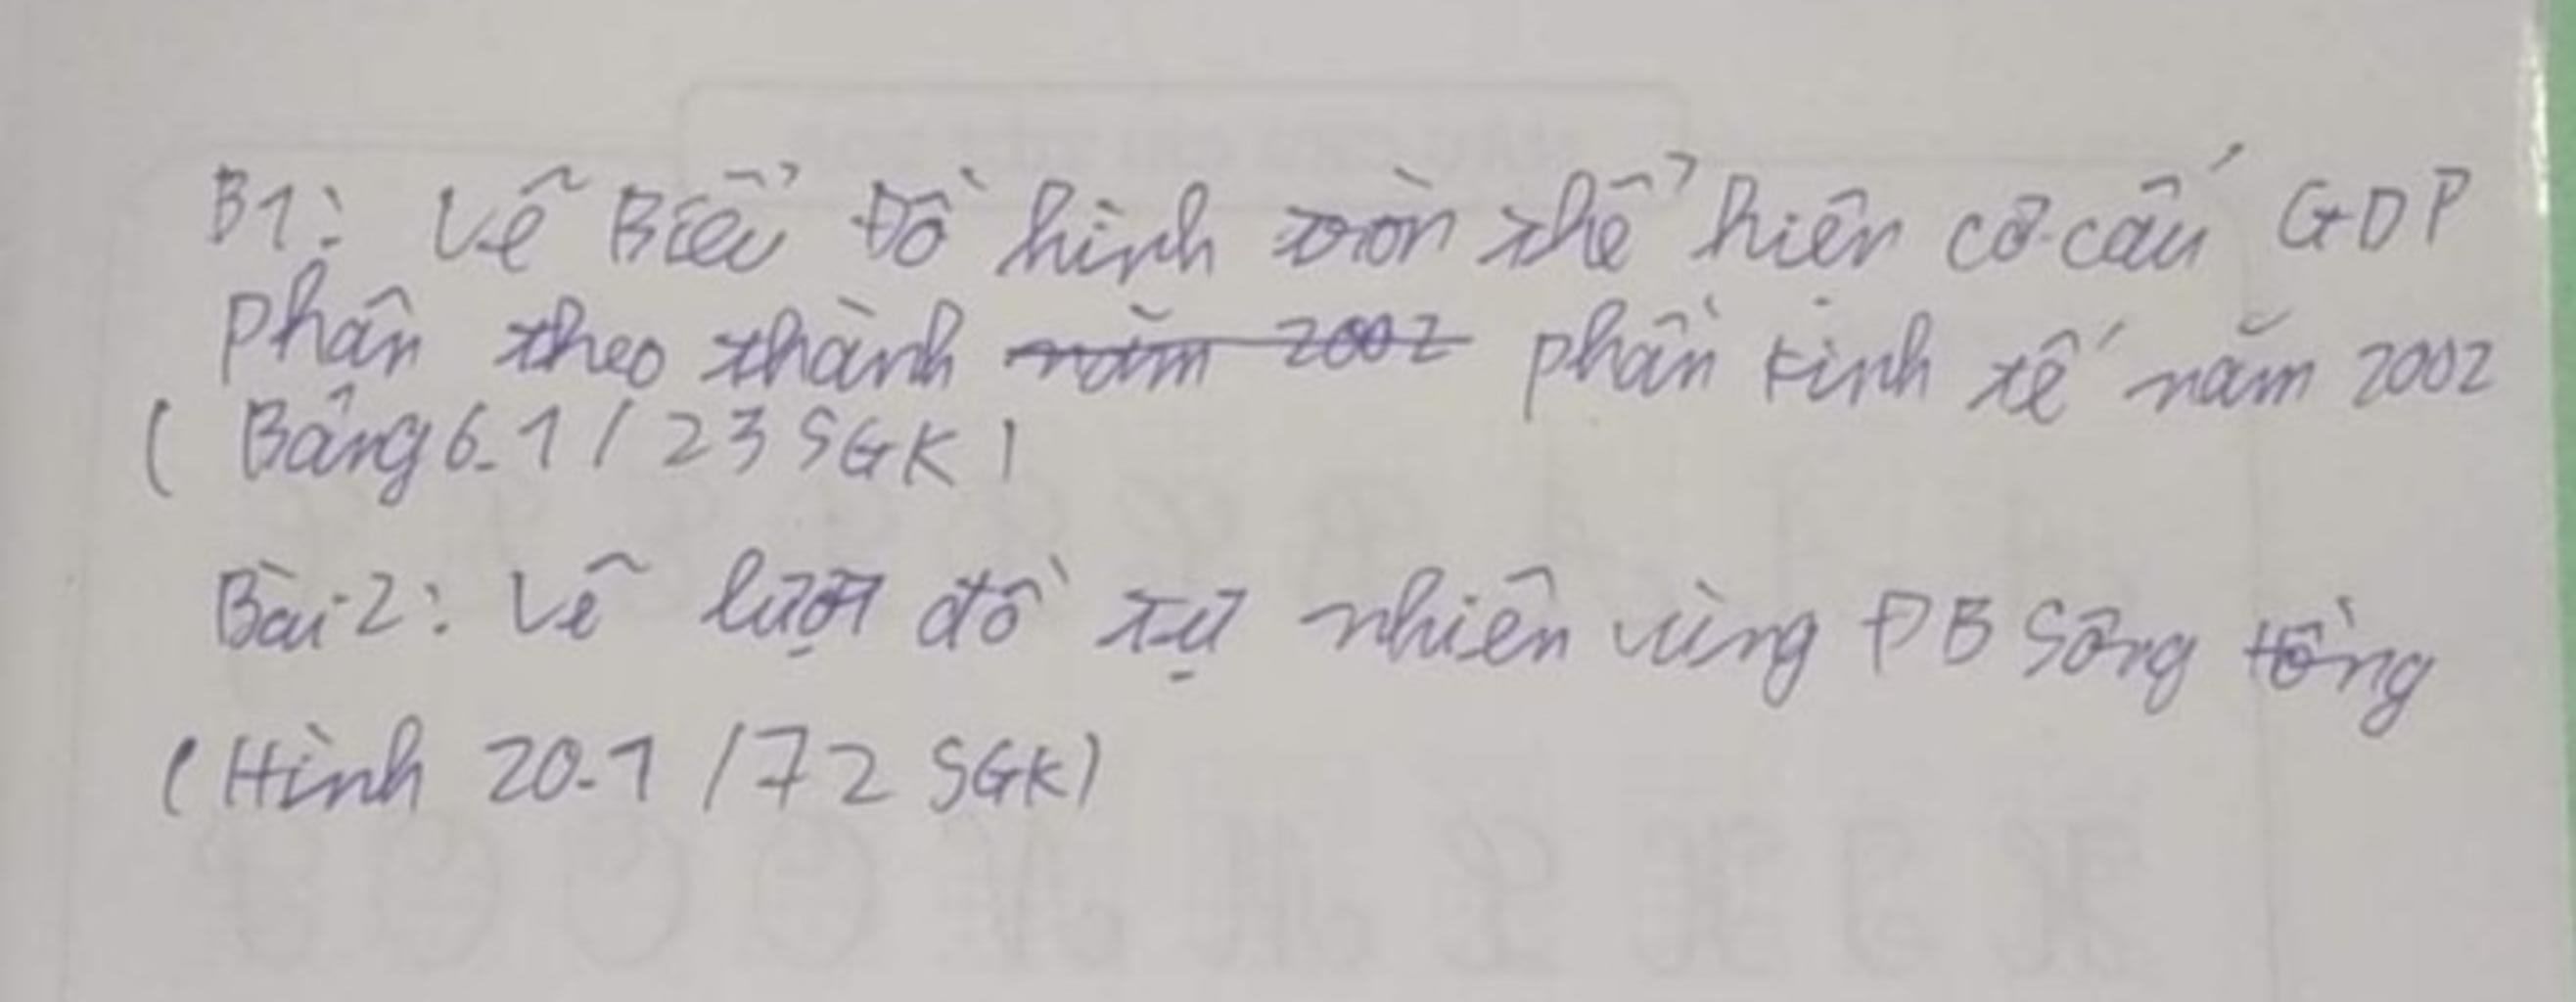 B1: Vẽ Biểu Đồ hình tròn thể hiên cơ cấu GDP
Phân theo thành năm 2002 phần kinh tế năm 2002
( Bảng 6.1 / 23 SGK )
Bài 2: Vẽ lượt đồ tự nhiên vùng ĐB Sông Hồng
(Hình 20.1 / 72 SGK)